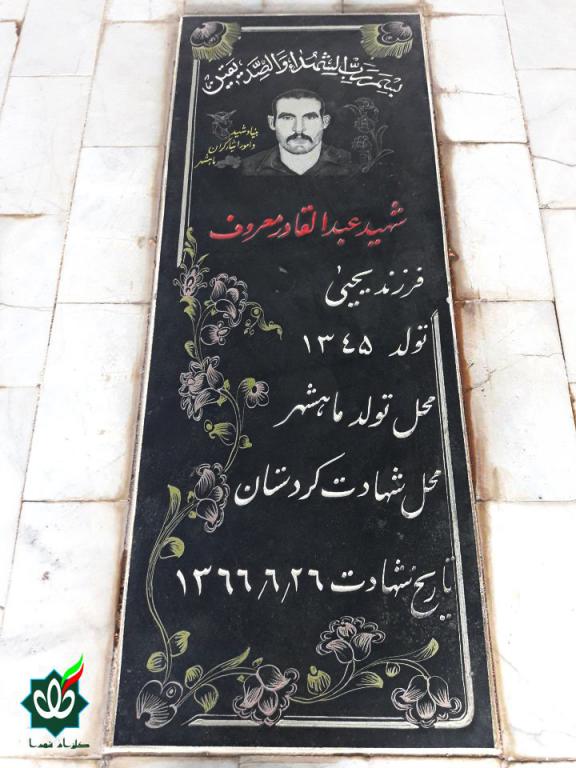 بسم رب الشهداء والصدیقین
بنیاد شهید
و امور ایثارگران
ماهشهر
شهید عبدالقادر معروف
فرزند یحیی
تولد ۱۳۴۵
محل تولد ماهشهر
محل شهادت کردستان
تاریخ شهادت ۱۳۶۶/۶/۲۶
گلزار شهدا